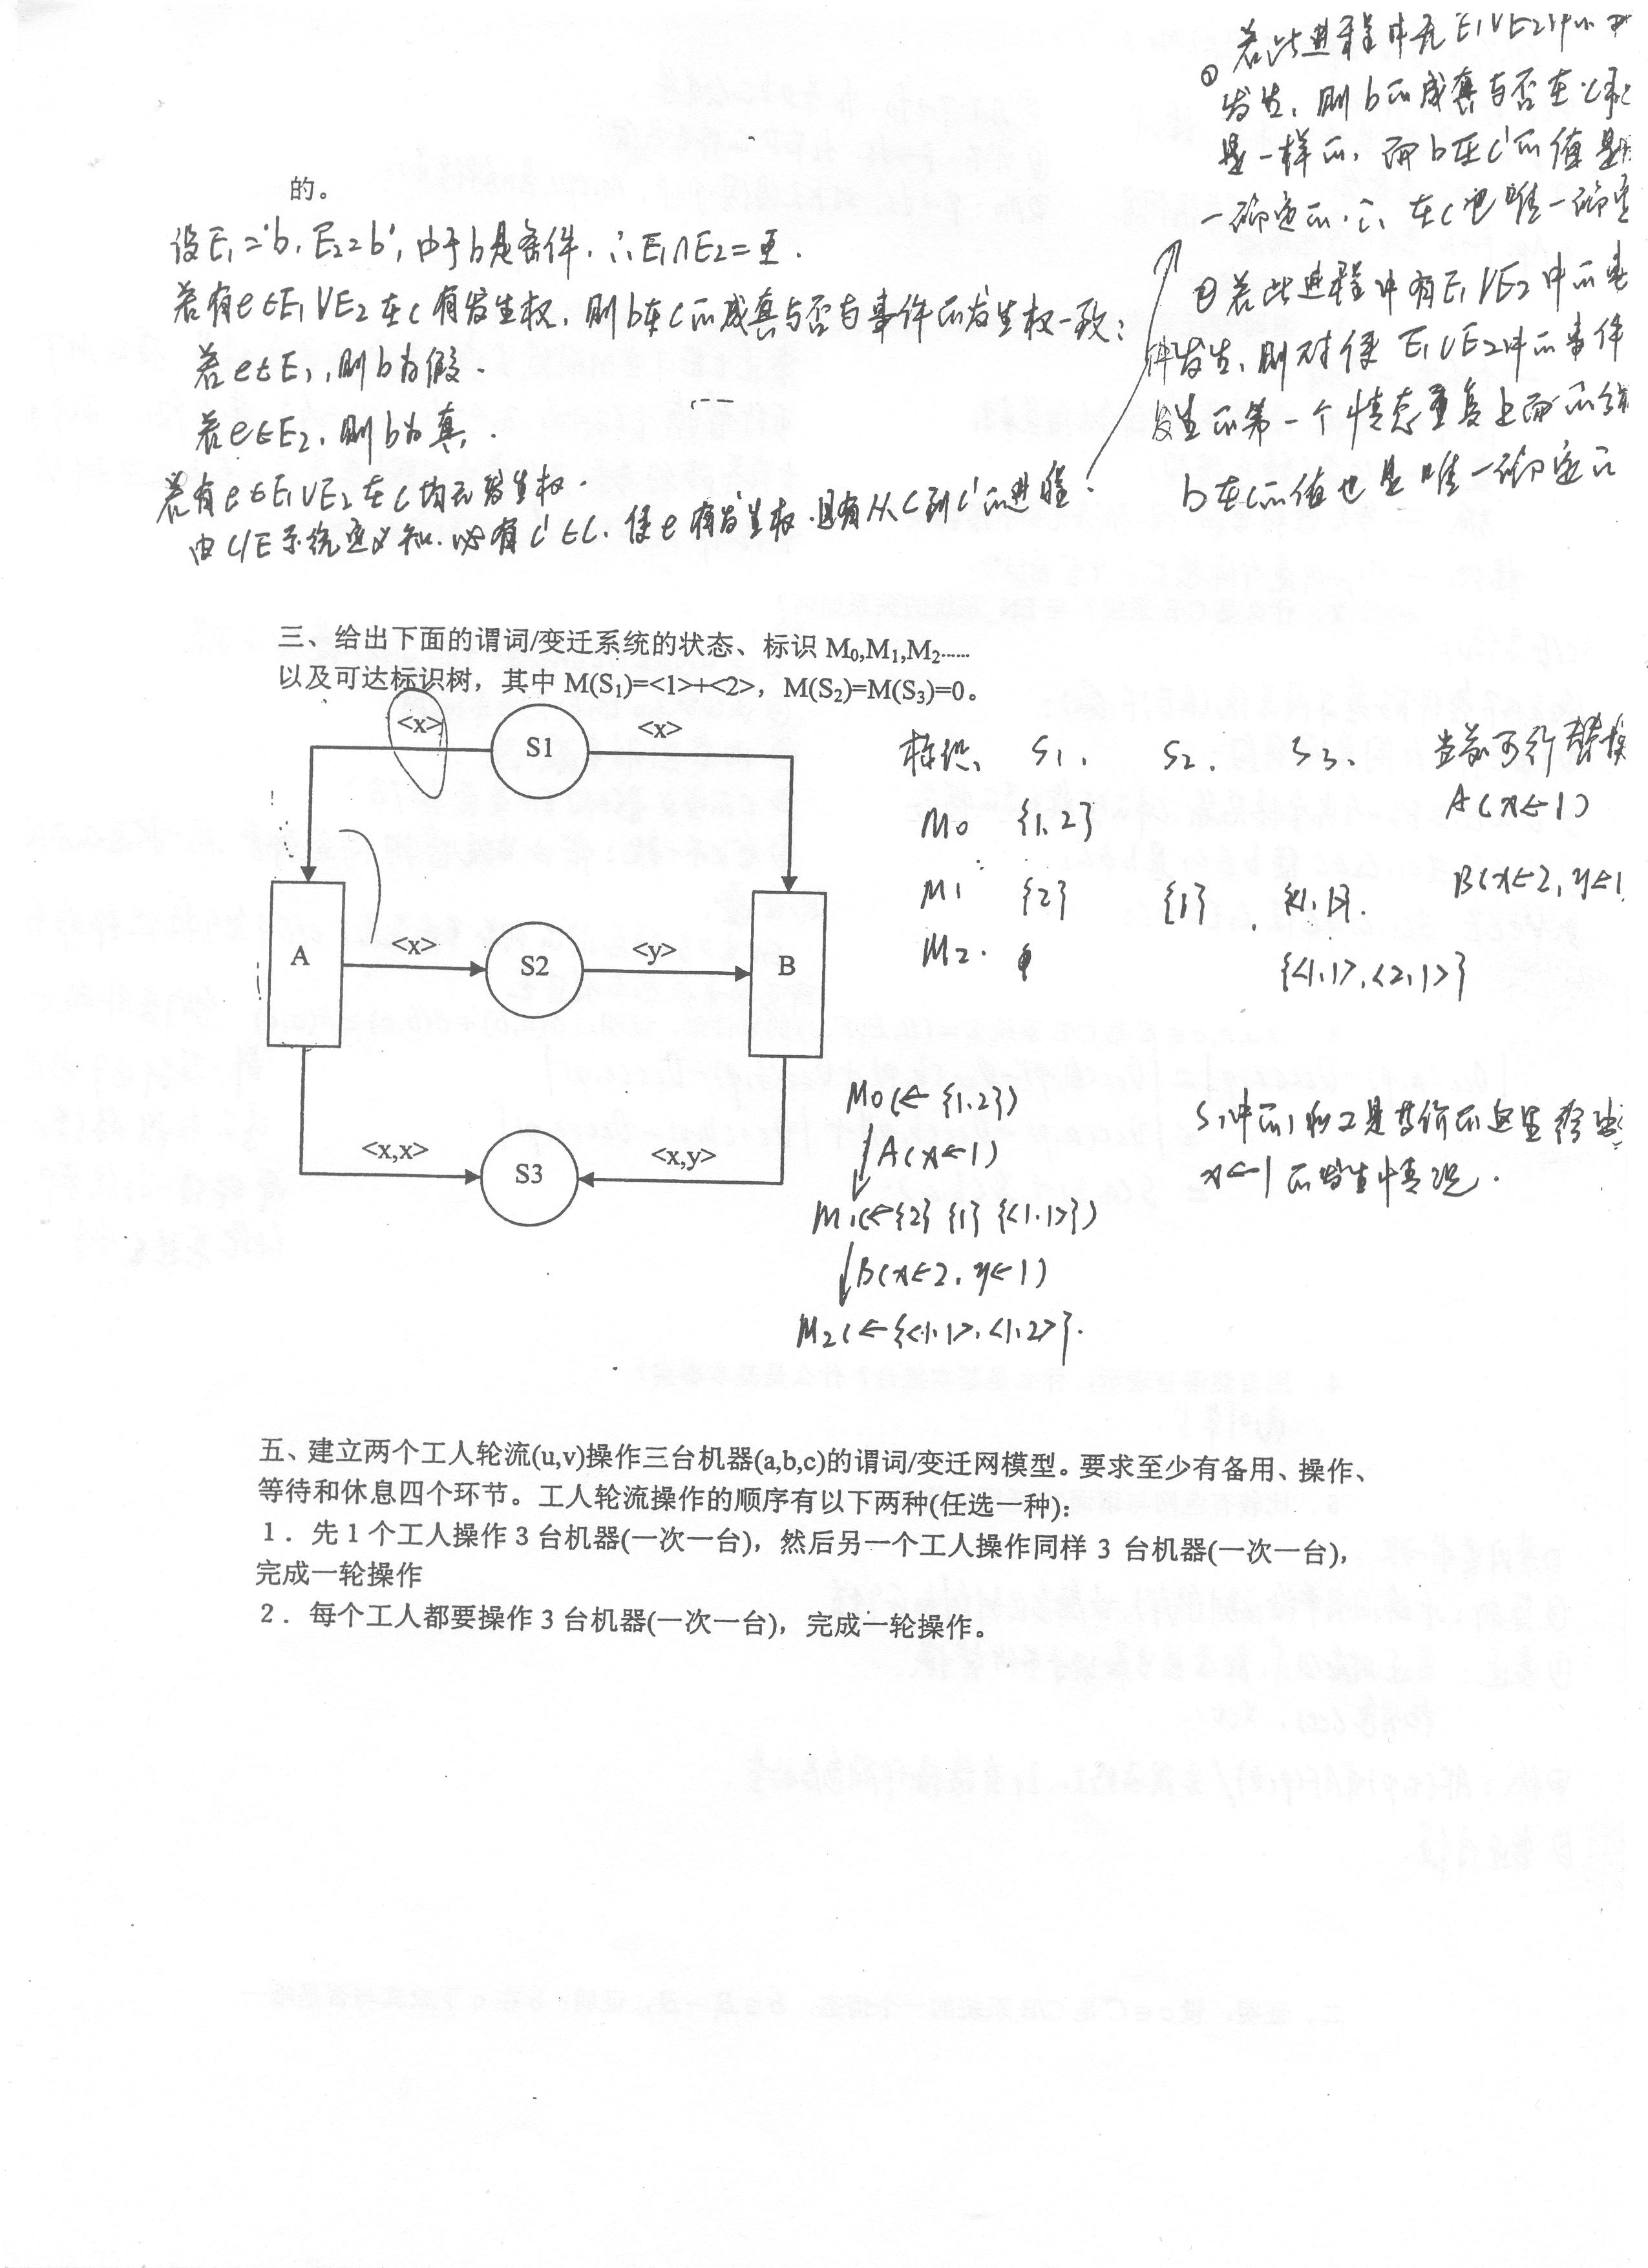 的。
设E₁='b, E₂=b', 由于b是条件, ∴E₁∩E₂=
若有e∈E₁∪E₂在c有发生权, 则b在c的成真与否与事件的发生权一致:
若e∈E₁, 则b为假.
若e∈E₂, 则b为真.
若有e∈E₁∪E₂在c均无发生权.
由C/E系统定义知, 必有c'∈C, 使e有发生权, 且有从c到c'的进程.
① 若此进程中无E₁∪E₂中的
发生, 则b的成真与否在c和c'
是一样的, 而b在c'的值是
一确定的, ∴在c也唯一确定
② 若此进程中有E₁∪E₂中的事
件发生, 则对使E₁∪E₂中的事件
发生的第一个情态重复上面的
b在c的值也是唯一确定的
三、给出下面的谓词/变迁系统的状态、标识 M₀,M₁,M₂……
以及可达标识树，其中 M(S₁)=<1>+<2>，M(S₂)=M(S₃)=0。
<x> S1 <x>
A <x> S2 <y> B
<x,x> S3 <x,y>
标识、 S₁、 S₂、 S₃、 当前可行替换
M₀ {1,2} A(x←1)
M₁ {2} {1} {<1,1>}. B(x←2, y←1
M₂. φ {<1,1>,<2,1>}
M₀(← {1,2})
A(x←1)
M₁(←{2} {1} {<1,1>})
B(x←2, y←1)
M₂(←{<1,1>,<1,2>}.
S₁中的1和2是等价的这里给出
x←1的发生情况.
五、建立两个工人轮流(u,v)操作三台机器(a,b,c)的谓词/变迁网模型。要求至少有备用、操作、
等待和休息四个环节。工人轮流操作的顺序有以下两种(任选一种)：
1．先 1 个工人操作 3 台机器(一次一台)，然后另一个工人操作同样 3 台机器(一次一台)，
完成一轮操作
2．每个工人都要操作 3 台机器(一次一台)，完成一轮操作。